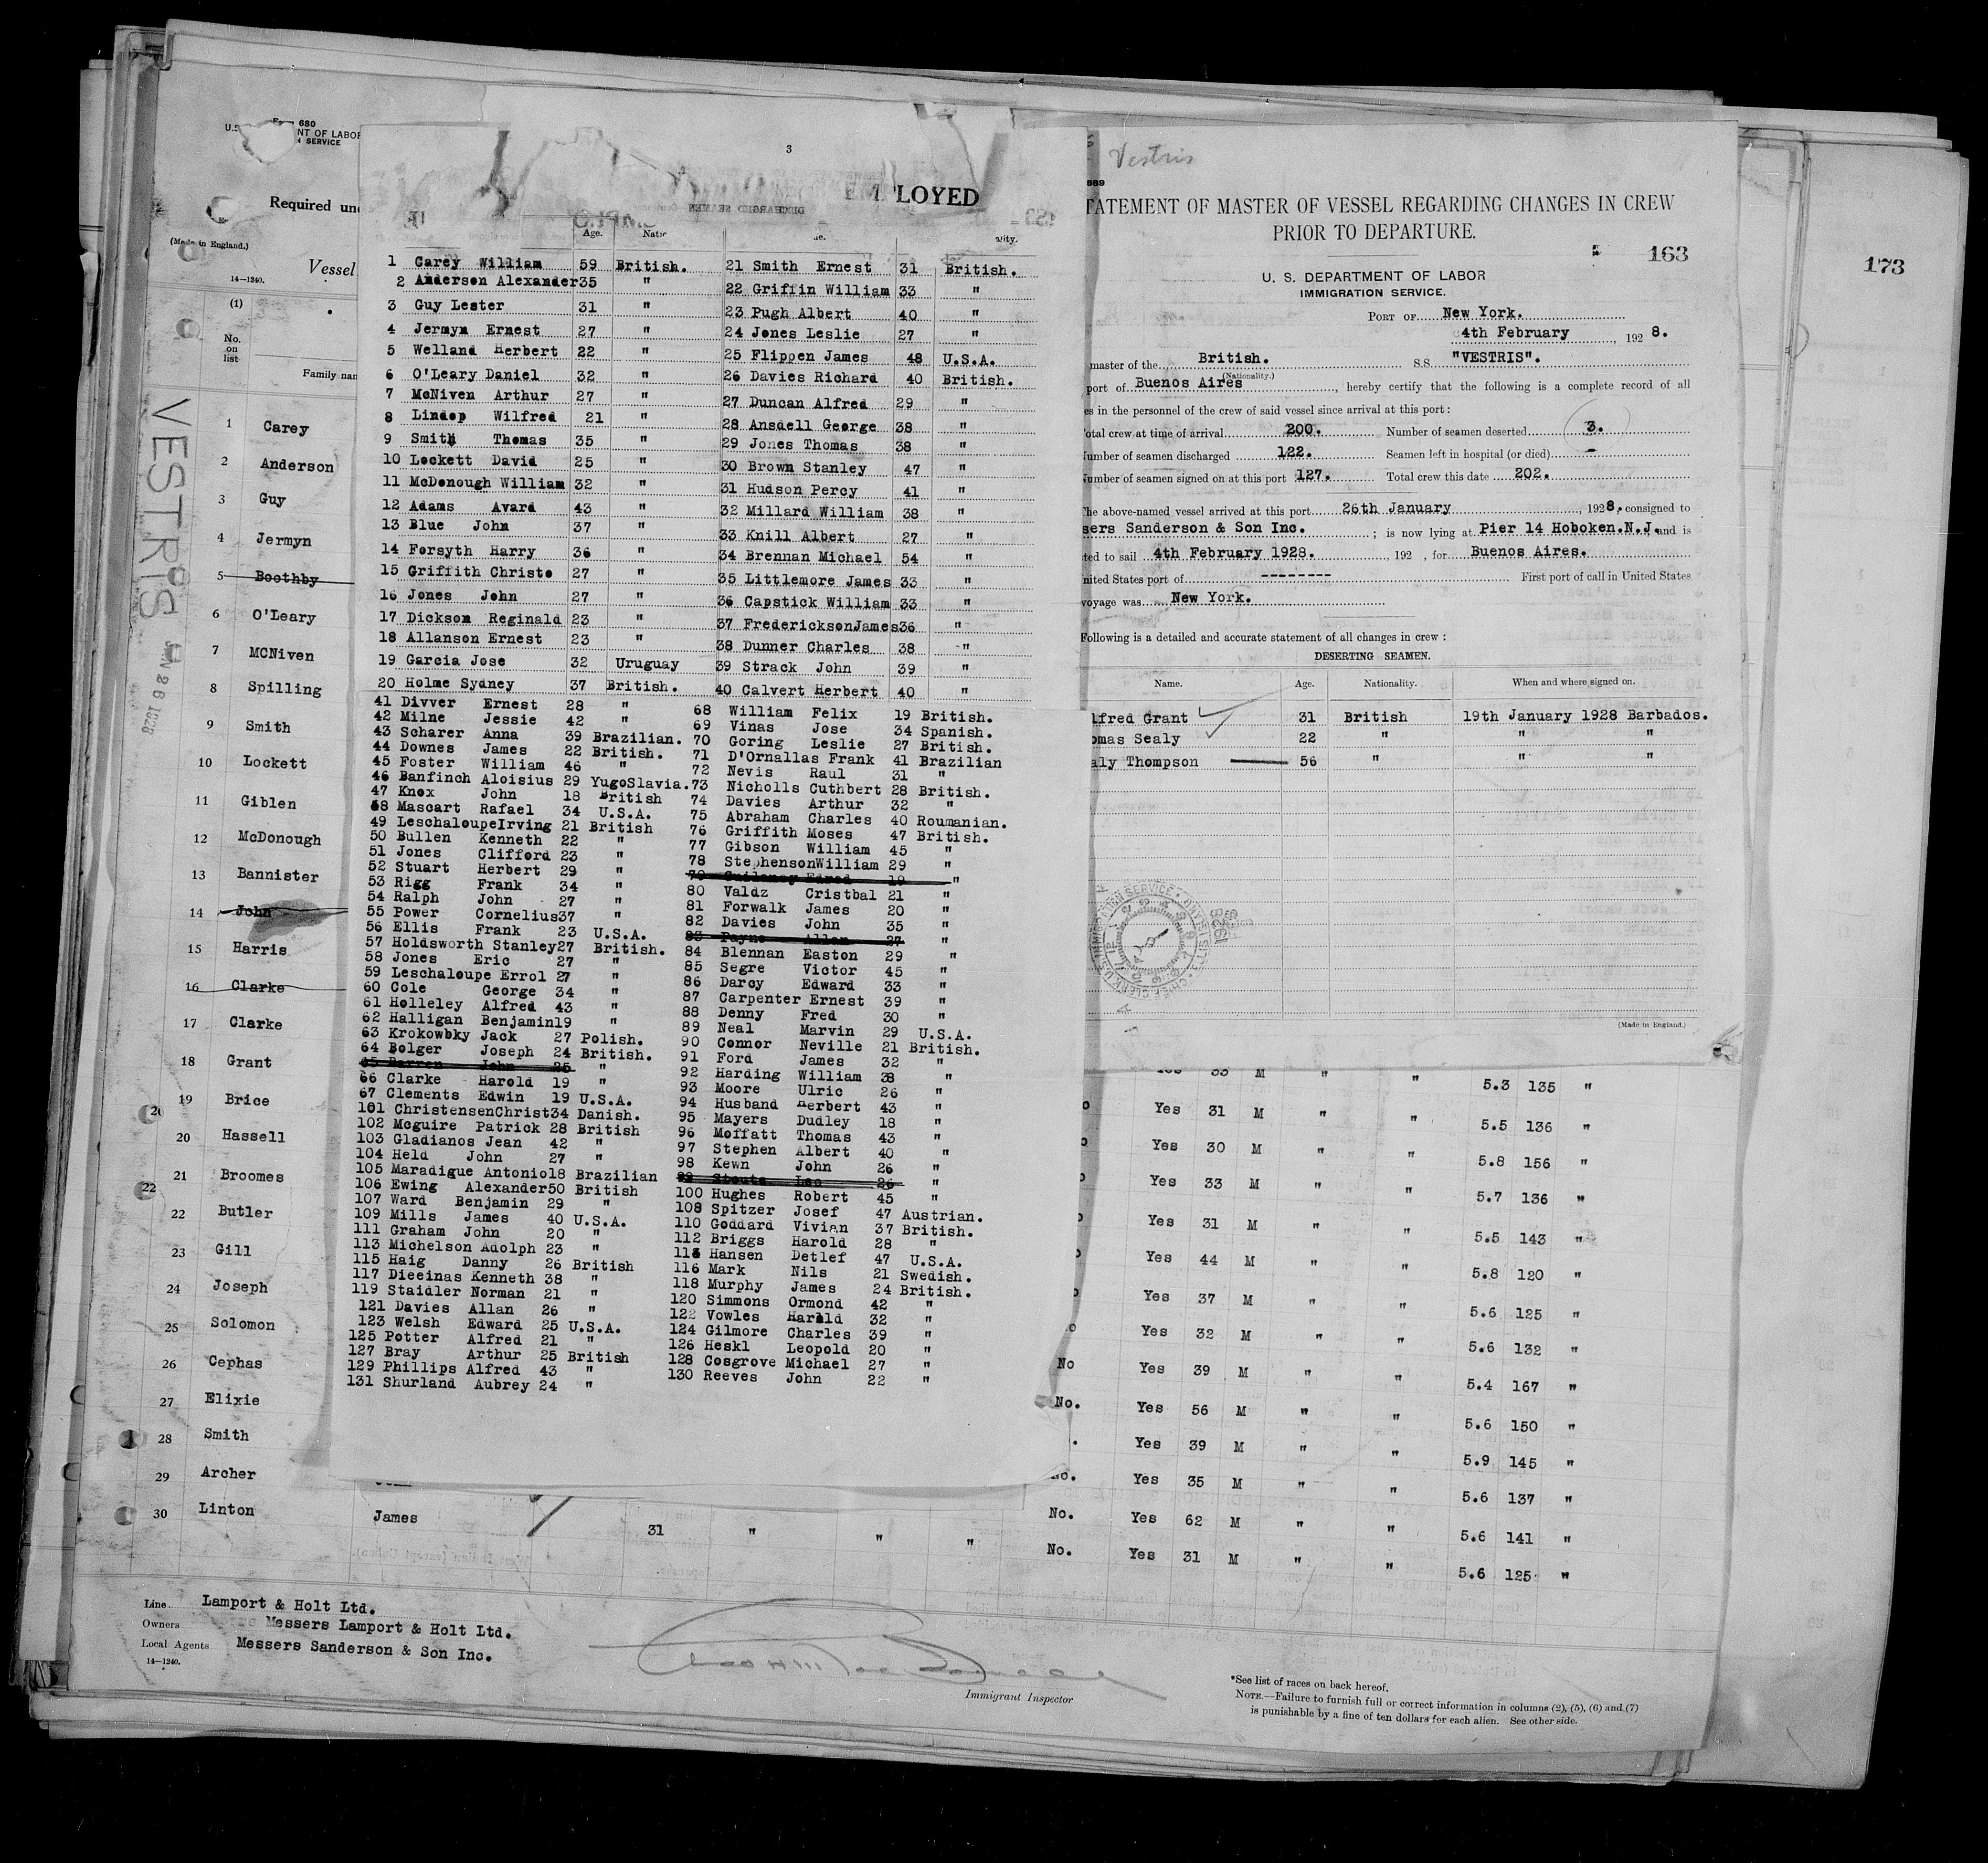 680
NT OF LABOR
SERVICE
Required un
(Made in England.)
Vessel
14—1240.
(1)
No.
on
list
Family nan
VESTRIS
JAN 26 1928
1 Carey
2 Anderson
3 Guy
4 Jermyn
5 Boothby
6 O'Leary
7 MCNiven
8 Spilling
9 Smith
10 Lockett
11 Giblen
12 McDonough
13 Bannister
14 John
15 Harris
16 Clarke
17 Clarke
18 Grant
19 Brice
20 Hassell
21 Broomes
22 Butler
23 Gill
24 Joseph
25 Solomon
26 Cephas
27 Elixie
28 Smith
29 Archer
30 Linton James 31 " " " No. Yes 31 M " " 5.6 125 "
3
EMPLOYED
DISCHARGED SEAMEN
Age. Natio
ality.
1 Carey William 59 British.
2 Anderson Alexander 35 "
3 Guy Lester 31 "
4 Jermyn Ernest 27 "
5 Welland Herbert 22 "
6 O'Leary Daniel 32 "
7 McNiven Arthur 27 "
8 Lindop Wilfred 21 "
9 Smith Thomas 35 "
10 Lockett David 25 "
11 McDonough William 32 "
12 Adams Avard 43 "
13 Blue John 37 "
14 Forsyth Harry 36 "
15 Griffith Christo 27 "
16 Jones John 27 "
17 Dickson Reginald 23 "
18 Allanson Ernest 23 "
19 Garcia Jose 32 Uruguay
20 Holme Sydney 37 British.
21 Smith Ernest 31 British.
22 Griffin William 33 "
23 Pugh Albert 40 "
24 Jones Leslie 27 "
25 Flippen James 48 U.S.A.
26 Davies Richard 40 British.
27 Duncan Alfred 29 "
28 Ansdell George 38 "
29 Jones Thomas 38 "
30 Brown Stanley 47 "
31 Hudson Percy 41 "
32 Millard William 38 "
33 Knill Albert 27 "
34 Brennan Michael 54 "
35 Littlemore James 33 "
36 Capstick William 33 "
37 FredericksonJames36 "
38 Dunner Charles 38 "
39 Strack John 39 "
40 Calvert Herbert 40 "
41 Divver Ernest 28 "
42 Milne Jessie 42 "
43 Scharer Anna 39 Brazilian.
44 Downes James 22 British.
45 Foster William 46 "
46 Banfinch Aloisius 29 YugoSlavia.
47 Knox John 18 British
48 Mascart Rafael 34 U.S.A.
49 LeschaloupeIrving 21 British
50 Bullen Kenneth 22 "
51 Jones Clifford 23 "
52 Stuart Herbert 29 "
53 Rigg Frank 34 "
54 Ralph John 27 "
55 Power Cornelius37 "
56 Ellis Frank 23 U.S.A.
57 Holdsworth Stanley27 British.
58 Jones Eric 27 "
59 Leschaloupe Errol 27 "
60 Cole George 34 "
61 Holleley Alfred 43 "
62 Halligan Benjamin19 "
63 Krokowbky Jack 27 Polish.
64 Bolger Joseph 24 British.
65 Barren John 25 "
66 Clarke Harold 19 "
67 Clements Edwin 19 U.S.A.
101 ChristensenChrist34 Danish.
102 Mcguire Patrick 28 British
103 Gladianos Jean 42 "
104 Held John 27 "
105 Maradigue Antonio18 Brazilian
106 Ewing Alexander50 British
107 Ward Benjamin 29 "
109 Mills James 40 U.S.A.
111 Graham John 20 "
113 Michelson Adolph 23 "
115 Haig Danny 26 British
117 Dieeinas Kenneth 38 "
119 Staidler Norman 21 "
121 Davies Allan 26 "
123 Welsh Edward 25 U.S.A.
125 Potter Alfred 21 "
127 Bray Arthur 25 British
129 Phillips Alfred 43 "
131 Shurland Aubrey 24 "
68 William Felix 19 British.
69 Vinas Jose 34 Spanish.
70 Goring Leslie 27 British.
71 D'Ornallas Frank 41 Brazilian
72 Nevis Raul 31 "
73 Nicholls Cuthbert 28 British.
74 Davies Arthur 32 "
75 Abraham Charles 40 Roumanian.
76 Griffith Moses 47 British.
77 Gibson William 45 "
78 StephensonWilliam 29 "
79 19 "
80 Valdz Cristbal 21 "
81 Forwalk James 20 "
82 Davies John 35 "
83 Payne Allan 27 "
84 Blennan Easton 29 "
85 Segre Victor 45 "
86 Darcy Edward 33 "
87 Carpenter Ernest 39 "
88 Denny Fred 30 "
89 Neal Marvin 29 U.S.A.
90 Connor Neville 21 British.
91 Ford James 32 "
92 Harding William 38 "
93 Moore Ulric 26 "
94 Husband Herbert 43 "
95 Mayers Dudley 18 "
96 Moffatt Thomas 43 "
97 Stephen Albert 40 "
98 Kewn John 26 "
99 Stoute Leo 26 "
100 Hughes Robert 45 "
108 Spitzer Josef 47 Austrian.
110 Goddard Vivian 37 British.
112 Briggs Harold 28 "
114 Hansen Detlef 47 U.S.A.
116 Mark Nils 21 Swedish.
118 Murphy James 24 British.
120 Simmons Ormond 42 "
122 Vowles Harold 32 "
124 Gilmore Charles 39 "
126 Heskl Leopold 20 "
128 Cosgrove Michael 27 "
130 Reeves John 22 "
Vestris
689
TATEMENT OF MASTER OF VESSEL REGARDING CHANGES IN CREW
PRIOR TO DEPARTURE.
163
173
U. S. DEPARTMENT OF LABOR
IMMIGRATION SERVICE.
PORT OF New York.
4th February, 1928.
master of the British. S.S. "VESTRIS".
(Nationality.)
port of Buenos Aires, hereby certify that the following is a complete record of all
es in the personnel of the crew of said vessel since arrival at this port:
otal crew at time of arrival 200. Number of seamen deserted 3.
umber of seamen discharged 122. Seamen left in hospital (or died) -
umber of seamen signed on at this port 127. Total crew this date 202.
he above-named vessel arrived at this port 26th January, 1928, consigned to
sers Sanderson & Son Inc.; is now lying at Pier 14 Hoboken.N.J. and is
ted to sail 4th February 1928. , 192 , for Buenos Aires.
nited States port of -------- First port of call in United States
voyage was New York.
Following is a detailed and accurate statement of all changes in crew:
DESERTING SEAMEN.
Name. Age. Nationality. When and where signed on.
lfred Grant 31 British 19th January 1928 Barbados.
omas Sealy 22 " " "
aly Thompson 56 " " "
(Made in England.)
Yes 33 M " " 5.3 135 "
Yes 31 M " " 5.5 136 "
Yes 30 M " " 5.8 156 "
Yes 33 M " " 5.7 136 "
Yes 31 M " " 5.5 143 "
Yes 44 M " " 5.8 120 "
Yes 37 M " " 5.6 125 "
Yes 32 M " " 5.6 132 "
No Yes 39 M " " 5.4 167 "
No. Yes 56 M " " 5.6 150 "
Yes 39 M " " 5.9 145 "
No. Yes 35 M " " 5.6 137 "
No. Yes 62 M " " 5.6 141 "
Line Lamport & Holt Ltd.
Owners Messers Lamport & Holt Ltd.
Local Agents Messers Sanderson & Son Inc.
14—1240.
Immigrant Inspector
*See list of races on back hereof.
NOTE.—Failure to furnish full or correct information in columns (2), (5), (6) and (7)
is punishable by a fine of ten dollars for each alien. See other side.